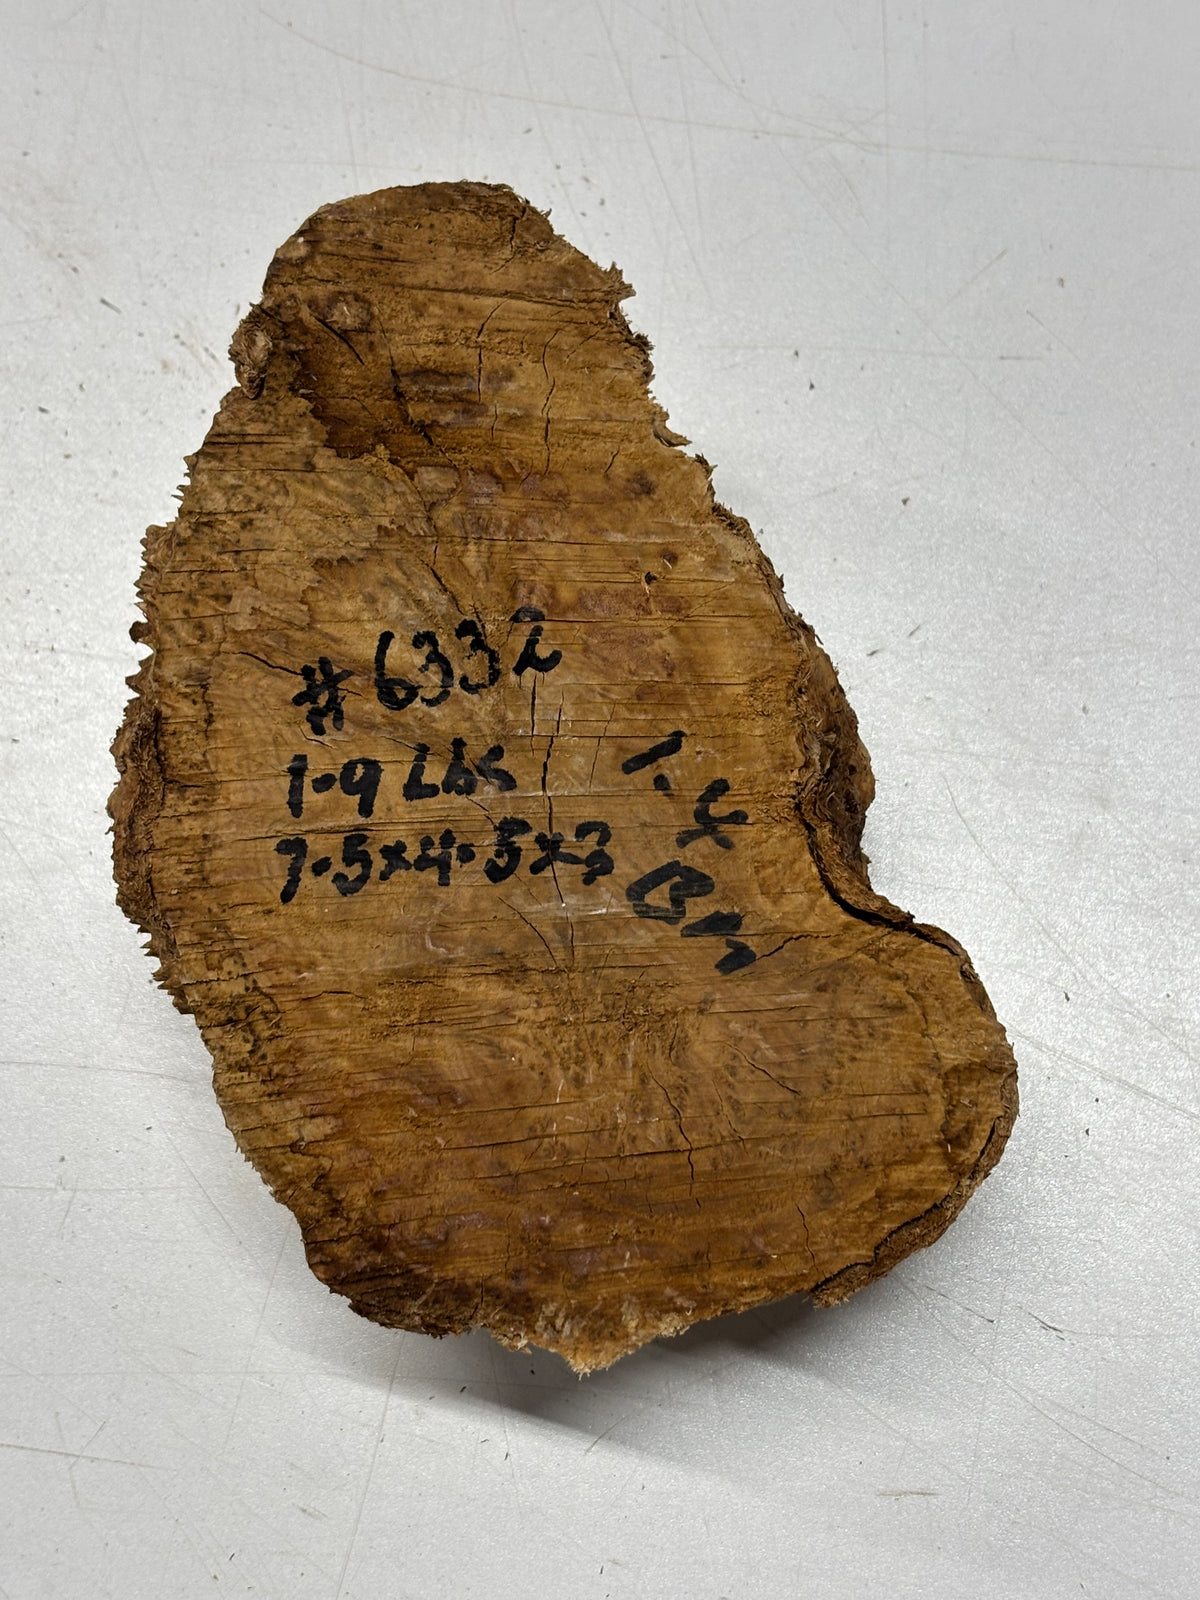 #6332
1.9 Lbs
7.5x4.5x3
1.4
Bm